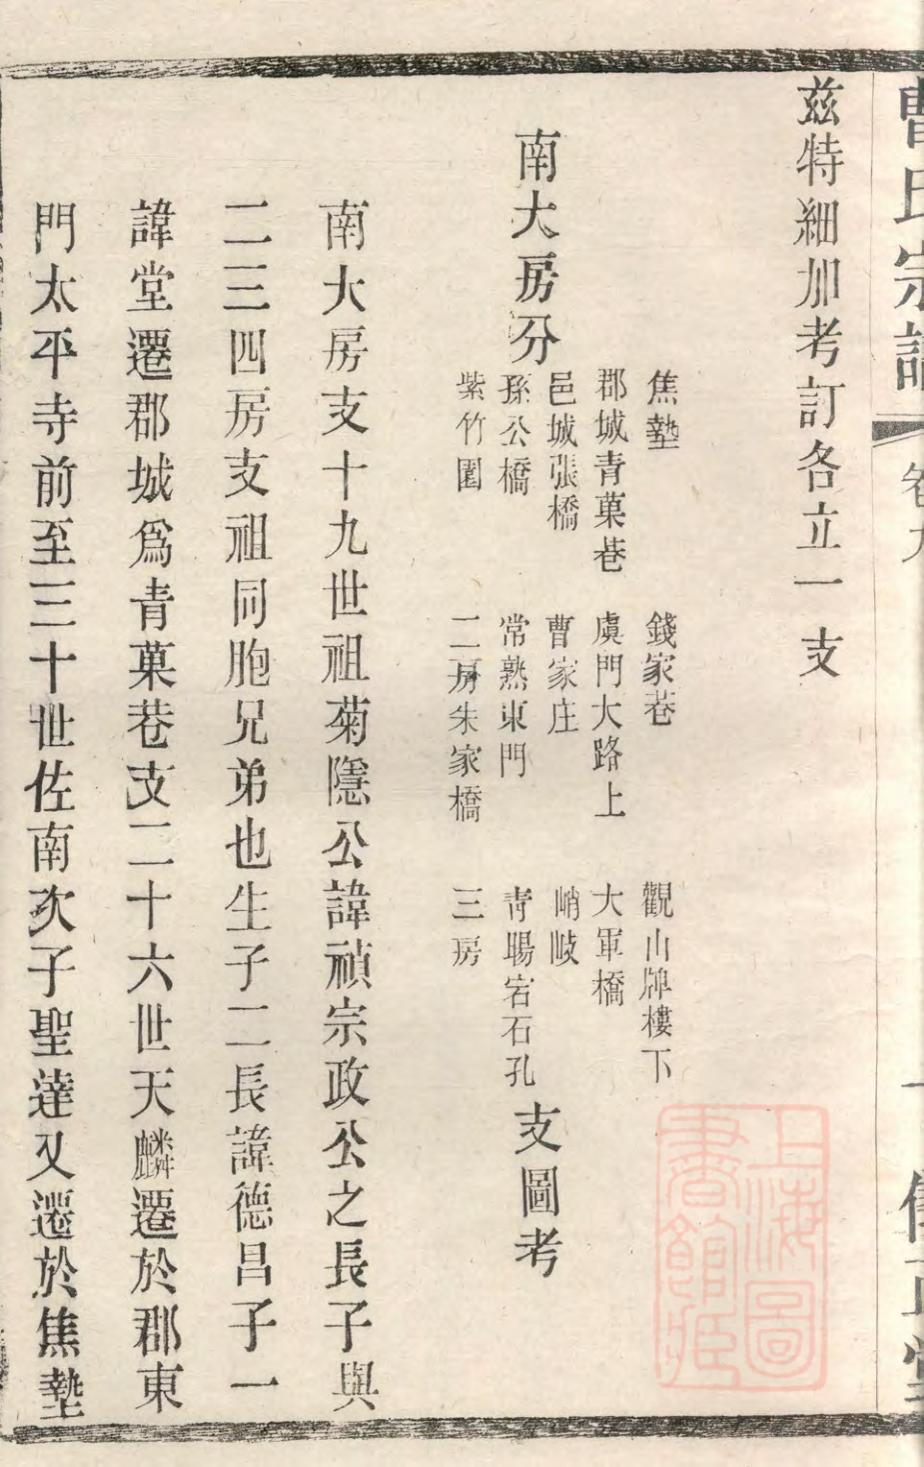 曹氏宗譜 卷九 一
茲特細加考訂各立一支
南大房分
焦墊 錢家巷 觀山牌樓下
郡城青菓巷 虞門大路上 大軍橋
邑城張橋 曹家庄 峭岐
孫公橋 常熟東門 青暘宕石孔
紫竹園 二房朱家橋 三房
支圖考
南大房支十九世祖菊隱公諱禎宗政公之長子與
二三四房支祖同胞兄弟也生子二長諱德昌子一
諱堂遷郡城爲青菓巷支二十六世天麟遷於郡東
門太平寺前至三十世佐南次子聖達又遷於焦墊
上海圖書館藏